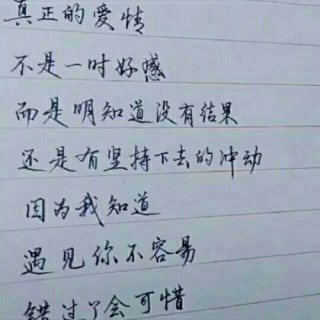 真正的爱情
不是一时好感
而是明知道没有结果
还是有坚持下去的冲动
因为我知道
遇见你不容易
错过了会可惜